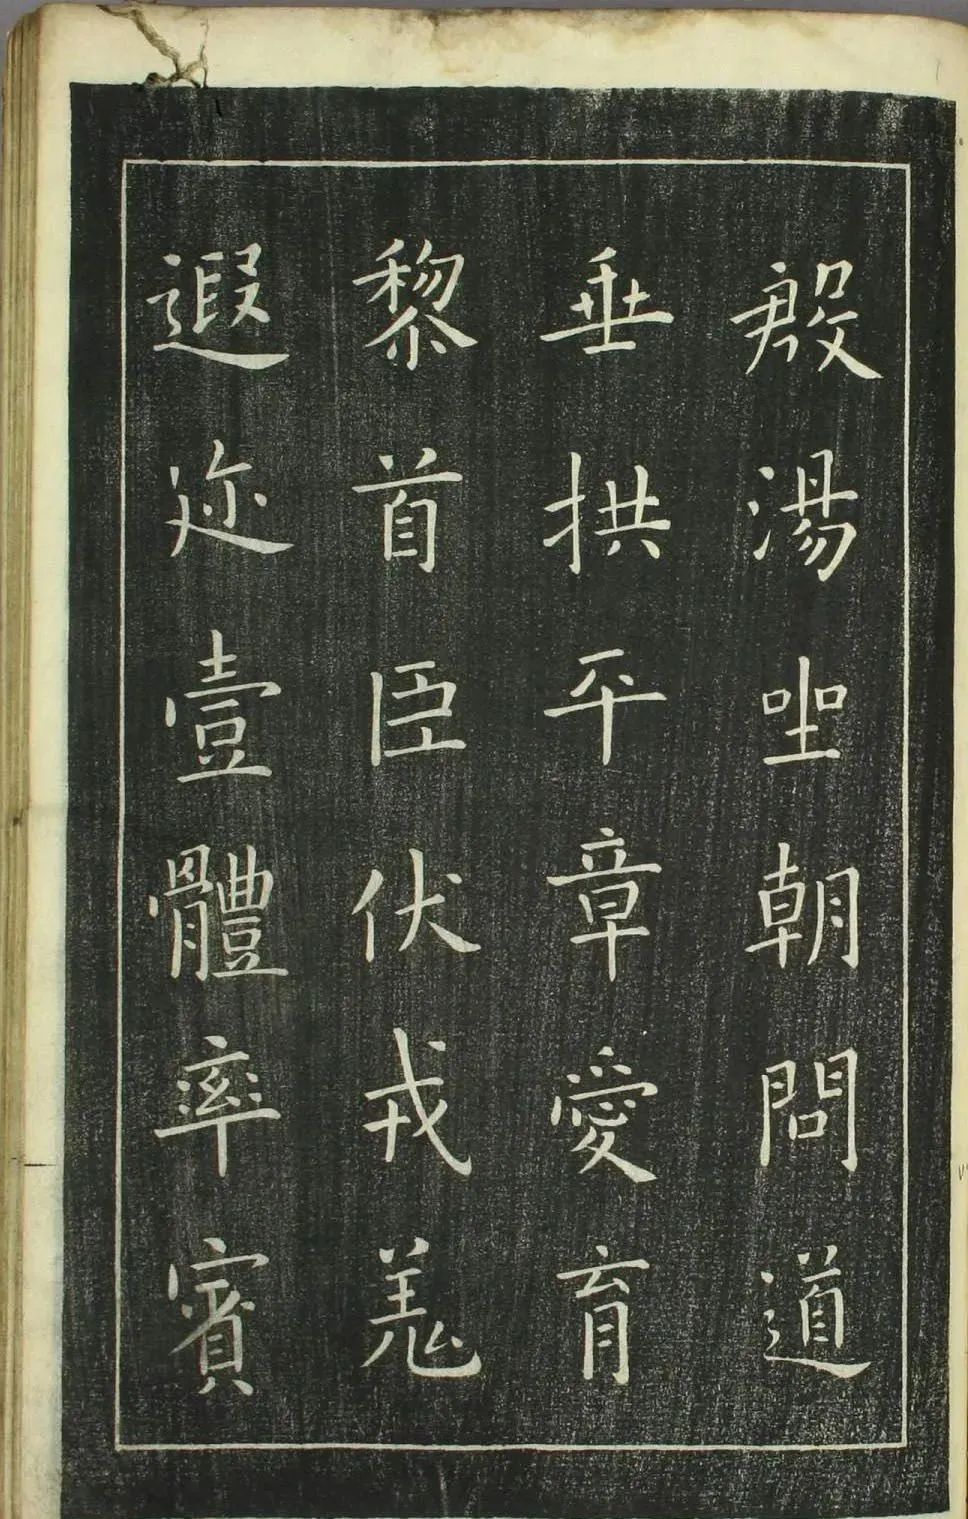 殷湯坐朝問道
垂拱平章愛育
黎首臣伏戎羌
遐迩壹體率賓